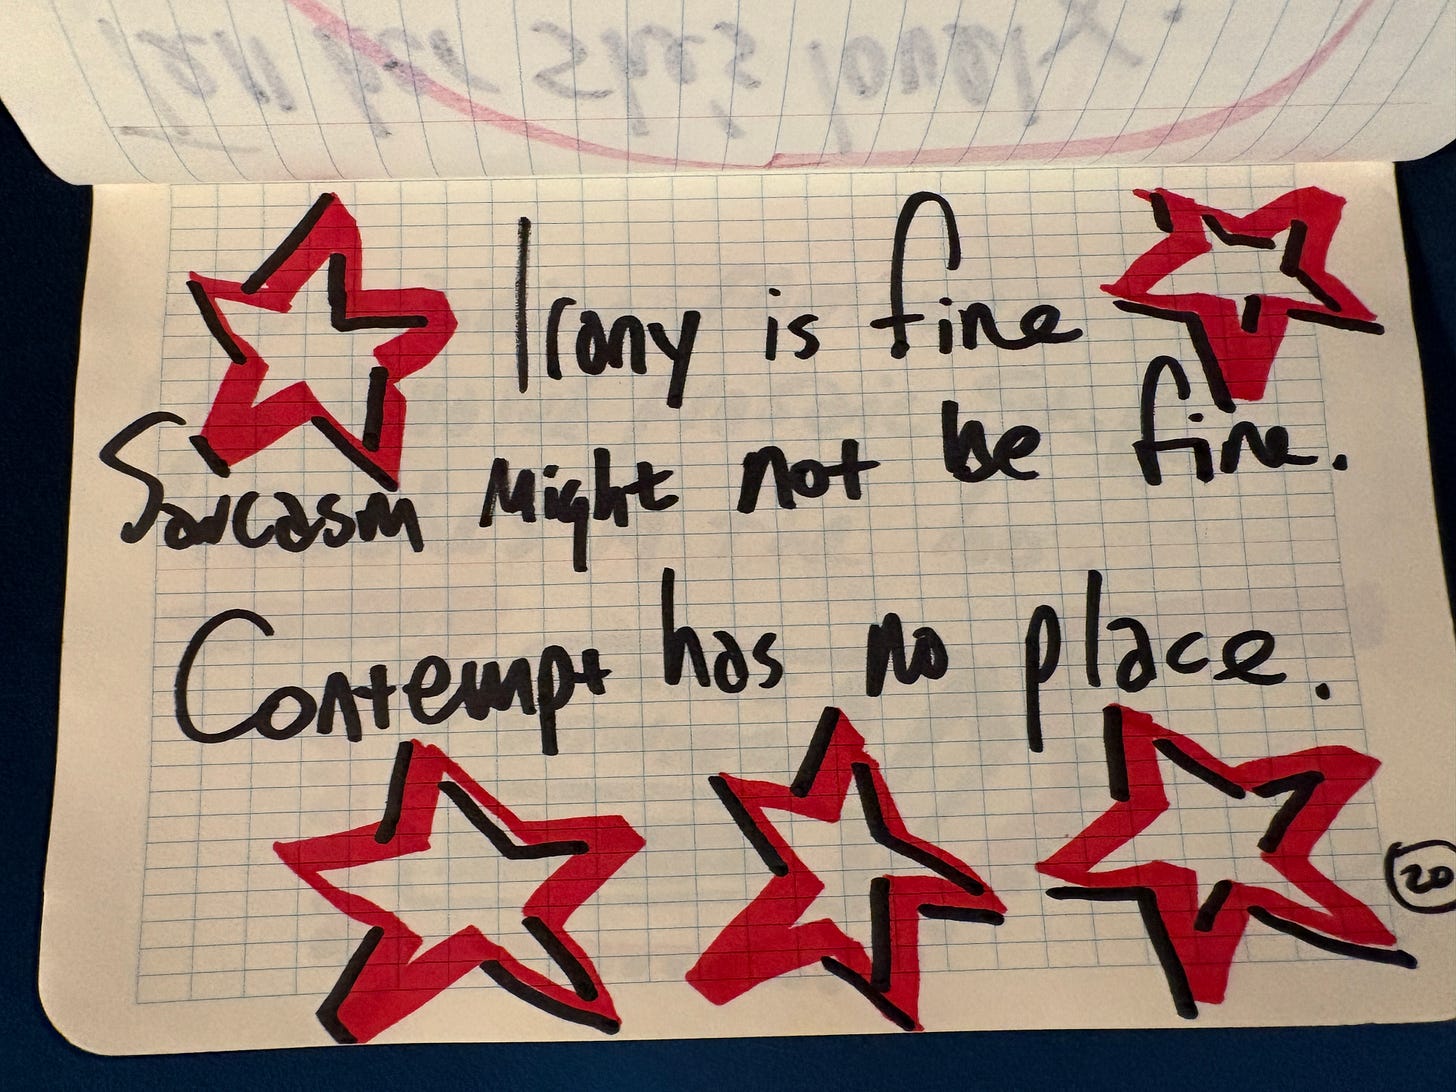 Irony is fine
Sarcasm Might not be fine.
Contempt has no place.
20